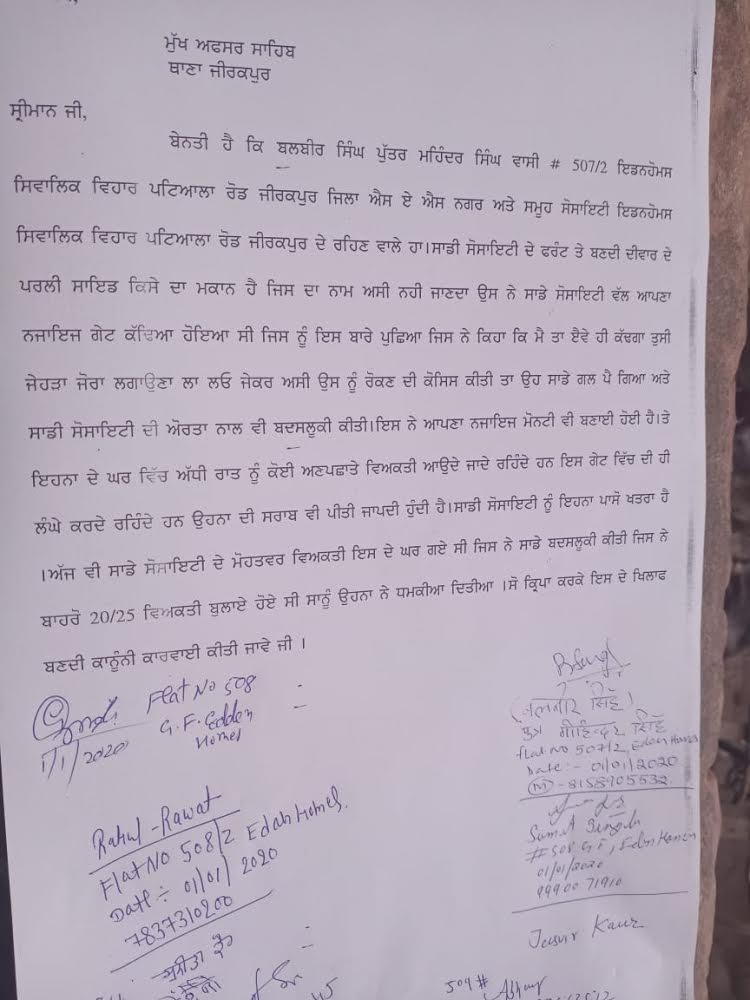 ਮੁੱਖ ਅਫਸਰ ਸਾਹਿਬ
ਥਾਣਾ ਜੀਰਕਪੁਰ
ਸ੍ਰੀਮਾਨ ਜੀ,
ਬੇਨਤੀ ਹੈ ਕਿ ਬਲਬੀਰ ਸਿੰਘ ਪੁੱਤਰ ਮਹਿੰਦਰ ਸਿੰਘ ਵਾਸੀ # 507/2 ਇਡਨਹੋਮਸ
ਸਿਵਾਲਿਕ ਵਿਹਾਰ ਪਟਿਆਲਾ ਰੋਡ ਜੀਰਕਪੁਰ ਜਿਲਾ ਐਸ ਏ ਐਸ ਨਗਰ ਅਤੇ ਸਮੂਹ ਸੋਸਾਇਟੀ ਇਡਨਹੋਮਸ
ਸਿਵਾਲਿਕ ਵਿਹਾਰ ਪਟਿਆਲਾ ਰੋਡ ਜੀਰਕਪੁਰ ਦੇ ਰਹਿਣ ਵਾਲੇ ਹਾ।ਸਾਡੀ ਸੋਸਾਇਟੀ ਦੇ ਫਰੰਟ ਤੇ ਬਣਦੀ ਦੀਵਾਰ ਦੇ
ਪਰਲੀ ਸਾਇਡ ਕਿਸੇ ਦਾ ਮਕਾਨ ਹੈ ਜਿਸ ਦਾ ਨਾਮ ਅਸੀ ਨਹੀ ਜਾਣਦਾ ਉਸ ਨੇ ਸਾਡੇ ਸੋਸਾਇਟੀ ਵੱਲ ਆਪਣਾ
ਨਜਾਇਜ ਗੇਟ ਕੱਢਿਆ ਹੋਇਆ ਸੀ ਜਿਸ ਨੂੰ ਇਸ ਬਾਰੇ ਪੁਛਿਆ ਜਿਸ ਨੇ ਕਿਹਾ ਕਿ ਮੈ ਤਾ ਏਵੇ ਹੀ ਕੱਢਗਾ ਤੁਸੀ
ਜੇਹੜਾ ਜੋਰਾ ਲਗਾਉਣਾ ਲਾ ਲਓ ਜੇਕਰ ਅਸੀ ਉਸ ਨੂੰ ਰੋਕਣ ਦੀ ਕੋਸਿਸ ਕੀਤੀ ਤਾ ਉਹ ਸਾਡੇ ਗਲ ਪੈ ਗਿਆ ਅਤੇ
ਸਾਡੀ ਸੋਸਾਇਟੀ ਦੀ ਔਰਤਾ ਨਾਲ ਵੀ ਬਦਸਲੂਕੀ ਕੀਤੀ।ਇਸ ਨੇ ਆਪਣਾ ਨਜਾਇਜ ਮੋਨਟੀ ਵੀ ਬਣਾਈ ਹੋਈ ਹੈ।ਤੇ
ਇਹਨਾ ਦੇ ਘਰ ਵਿੱਚ ਅੱਧੀ ਰਾਤ ਨੂੰ ਕੋਈ ਅਣਪਛਾਤੇ ਵਿਅਕਤੀ ਆਉਦੇ ਜਾਦੇ ਰਹਿੰਦੇ ਹਨ ਇਸ ਗੇਟ ਵਿੱਚ ਦੀ ਹੀ
ਲੰਘੇ ਕਰਦੇ ਰਹਿੰਦੇ ਹਨ ਉਹਨਾ ਦੀ ਸਰਾਬ ਵੀ ਪੀਤੀ ਜਾਪਦੀ ਹੁੰਦੀ ਹੈ।ਸਾਡੀ ਸੋਸਾਇਟੀ ਨੂੰ ਇਹਨਾ ਪਾਸੋ ਖਤਰਾ ਹੈ
।ਅੱਜ ਵੀ ਸਾਡੇ ਸੋਸਾਇਟੀ ਦੇ ਮੋਹਤਵਰ ਵਿਅਕਤੀ ਇਸ ਦੇ ਘਰ ਗਏ ਸੀ ਜਿਸ ਨੇ ਸਾਡੇ ਬਦਸਲੂਕੀ ਕੀਤੀ ਜਿਸ ਨੇ
ਬਾਹਰੋ 20/25 ਵਿਅਕਤੀ ਬੁਲਾਏ ਹੋਏ ਸੀ ਸਾਨੂੰ ਉਹਨਾ ਨੇ ਧਮਕੀਆ ਦਿਤੀਆ ।ਸੋ ਕ੍ਰਿਪਾ ਕਰਕੇ ਇਸ ਦੇ ਖਿਲਾਫ
ਬਣਦੀ ਕਾਨੂੰਨੀ ਕਾਰਵਾਈ ਕੀਤੀ ਜਾਵੇ ਜੀ ।
Flat No 508
G.F. Edden
Homes
1/1/2020
Rahul-Rawat
Flat NO 508/2 Edan Homes.
Date :- 01/01/2020
7837310200
(ਬਲਬੀਰ ਸਿੰਘ)
ਪੁੱਤਰ ਸਿੰਘ
flat no 507/2, Eden Homes
Date:- 01/01/2020
(M)-8158905532
Sumit Singh
#508 GF, Eden Homes
01/01/2020
99900 71910
Jasvir Kaur
509 #